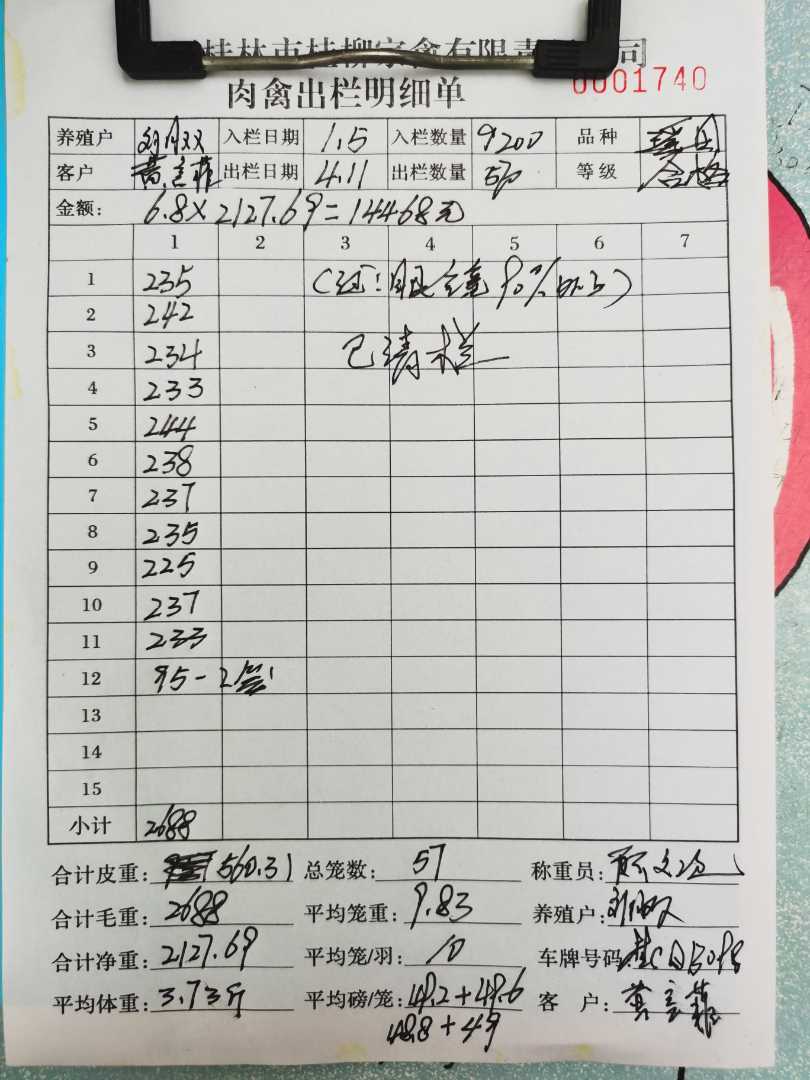 桂林市桂柳家禽有限责任公司
0001740
肉禽出栏明细单
养殖户 入栏日期 1.5 入栏数量 9200 品种
客户 出栏日期 4.11 出栏数量 570 等级 合格
金额: 6.8×2127.69=14468元
1 2 3 4 5 6 7
1 235 90%以上)
2 242
3 234 已清栏
4 233
5 244
6 238
7 237
8 235
9 225
10 237
11 233
12 95-2
13
14
15
小计 2688
合计皮重: 560.31 总笼数: 57 称重员:
合计毛重: 2688 平均笼重: 9.83 养殖户:
合计净重: 2127.69 平均笼/羽: 10 车牌号码
平均体重: 3.73斤 平均磅/笼: 48.2+48.6 客户:
48.8+49